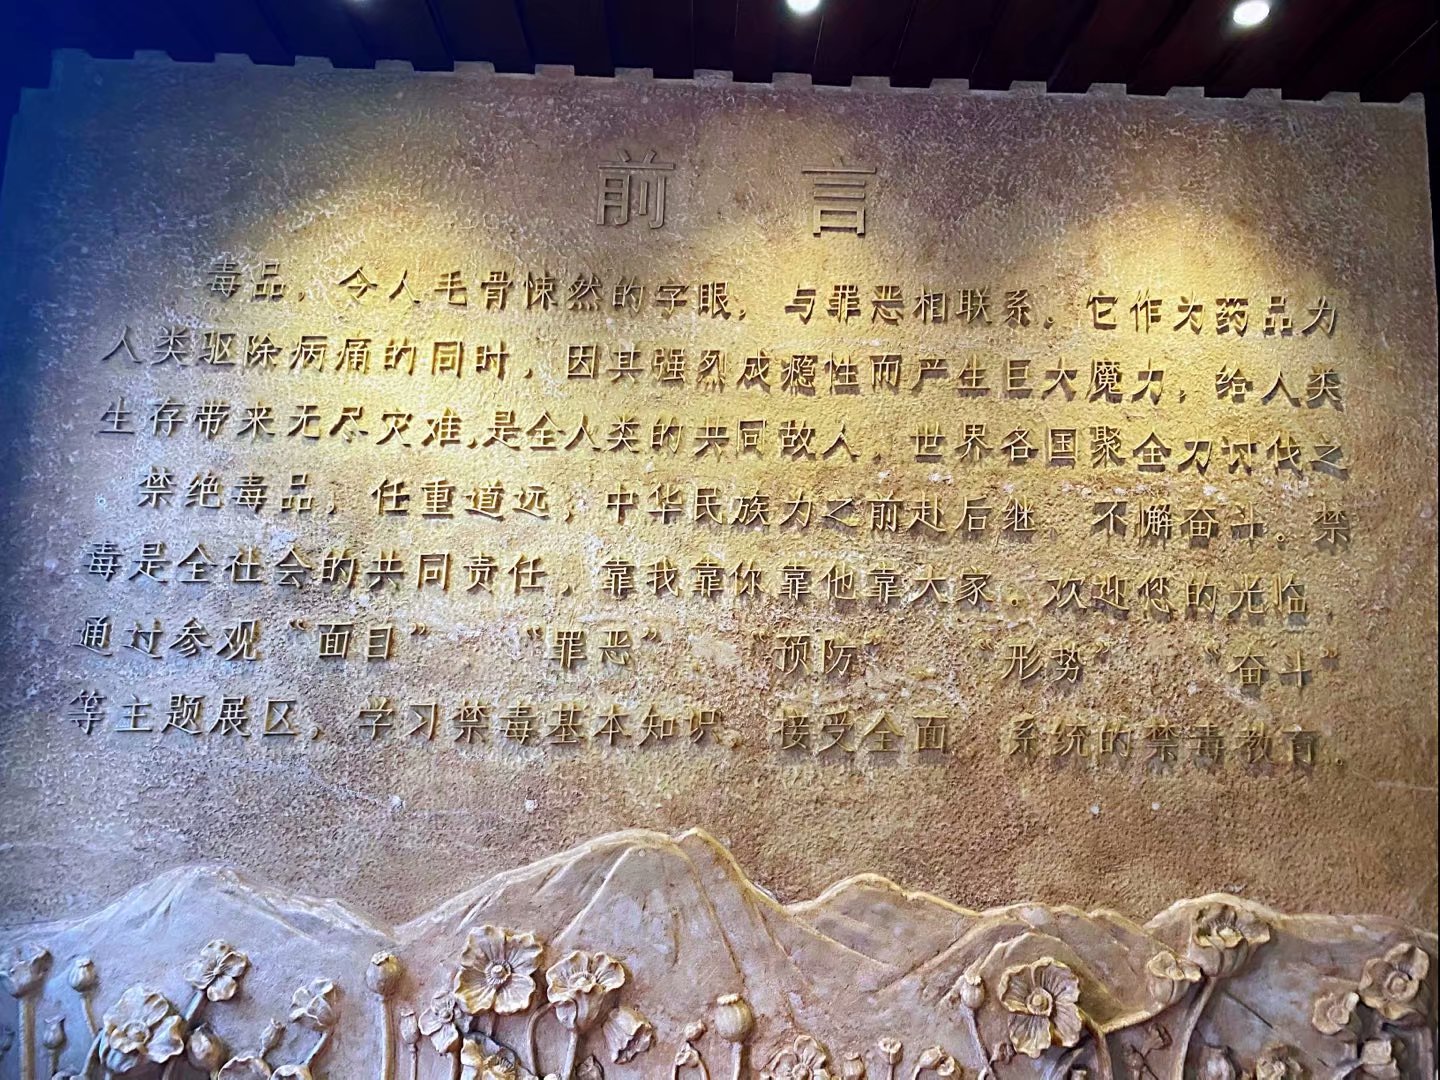 前言
毒品，令人毛骨悚然的字眼，与罪恶相联系。它作为药品力
人类驱除病痛的同时，因其强烈成瘾性而产生巨大魔力，给人类
生存带来无尽灾难，是全人类的共同敌人，世界各国聚全力讨伐之
禁绝毒品，任重道远，中华民族力之前赴后继 不懈奋斗。禁
毒是全社会的共同责任，靠我靠你靠他靠大家。欢迎您的光临，
通过参观“面目” “罪恶” “预防” “形势” “奋斗”
等主题展区，学习禁毒基本知识，接受全面 系统的禁毒教育。